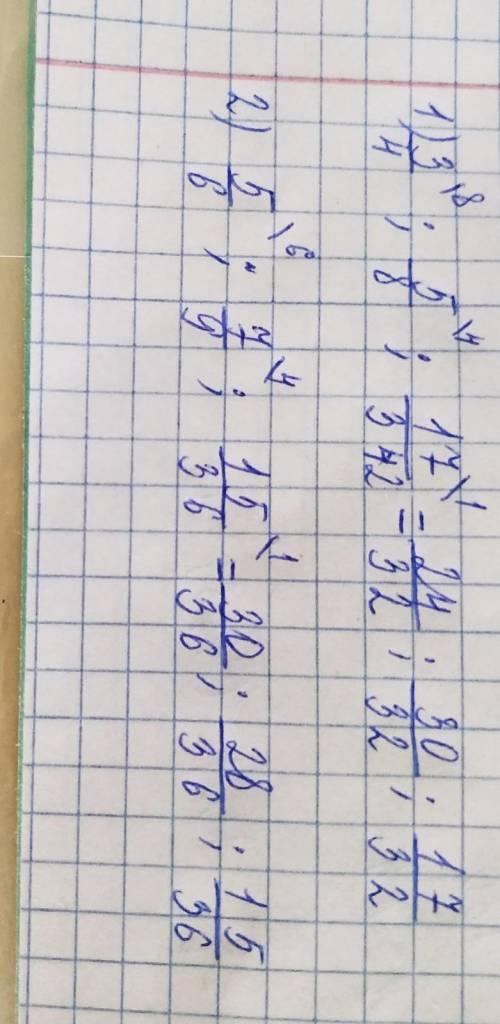 1) 3/4\8 ; 5/8\4 ; 17/32\1 = 24/32 ; 30/32 ; 17/32
2) 5/6\6 ; 7/9\4 ; 15/36\1 = 30/36 ; 28/36 ; 15/36